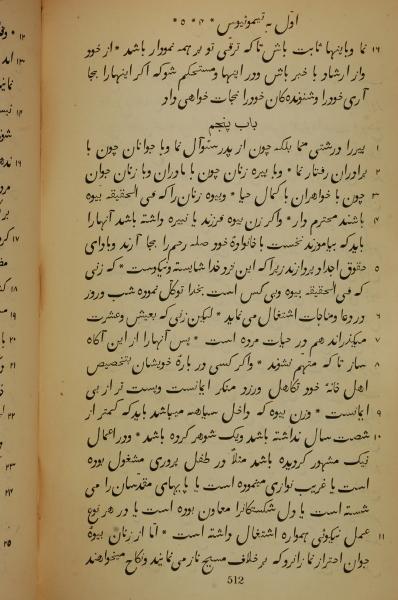 اوّل به تیموتیوس * ۴ * ۵ *
۱۶ نما و باینها ثابت باش تا که ترقّی تو بر همه نمودار باشد * از خود
واز ارشاد با خبر باش ودر اینها ومستحکم شو که اگر اینها را بجا
آری خود را وشنونده‌گان خود را نجات خواهی داد
باب پنجم
۱ پیر را درشتی منما بلکه چون از پدر سئوآل نما وبا جوانان چون با
۲ برادران رفتار نما * وبا پیره زنان چون با مادران وبا زنان جوان
۳ چون با خواهران با کمال حیا * وبیوه زنان را که فی الحقیقه بیوه
۴ باشند محترم دار * واگر زن بیوه فرزند یا نبیره داشته باشد آنها را
باید که بیاموزند نخست با خانوادهٔ خود صله رحم را بجا آرند وبادای
۵ حقوق اجداد پردازند زیرا که این نزد خدا شایسته ونیکوست * که زنی
که فی الحقیقه بیوه وبی کس است بخدا توکّل نموده شب وروز
۶ در دعا ومناجات اشتغال می نماید * لیکن زنی که بعیش وعشرت
۷ میگذراند هم در حیات مرده است * پس آنها را از این آگاه
۸ ساز تا که متهّم نشوند * واگر کسی در بارهٔ خویشان بتخصیص
اهل خانهٔ خود تکاهل ورزد منکر ایمانست وپست تر از بی
۹ ایمانست * وزن بیوه که داخل سیاهه میباشد باید که کمتر از
۱۰ شصت سال نداشته باشد ویک شوهر کرده باشد * ودر اعمال
نیک مشهور گردیده باشد مثلاً در طفل پروری مشغول بوده
است یا غریب نوازی مینموده است یا پایهای مقدّسان را می
شسته است یا دل شکستگانرا معاون بوده است یا در هر نوع
۱۱ عمل نیکوئی همواره اشتغال داشته است * امّا از زنان بیوهٔ
جوان احتراز نما زانرو که بر خلاف مسیح ناز می نمایند ونکاح میخواهند
512